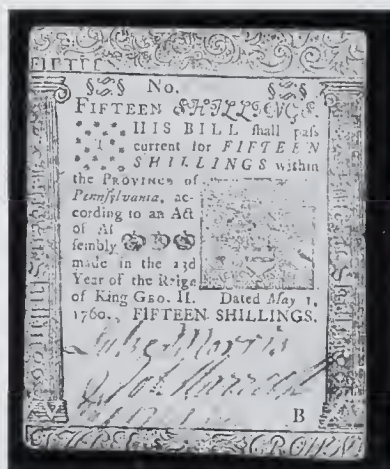 FIFTEE
No.
FIFTEEN SHILLINGS.
HIS BILL ſhall paſs
current for FIFTEEN
SHILLINGS within
the PROVINCE of
Pennſylvania, ac-
cording to an Act
of Aſ
ſembly
made in the 23d
Year of the Reign
of King GEO. II. Dated May 1,
1760. FIFTEEN SHILLINGS.
Morris
B